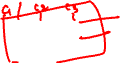 c1 c2 c3